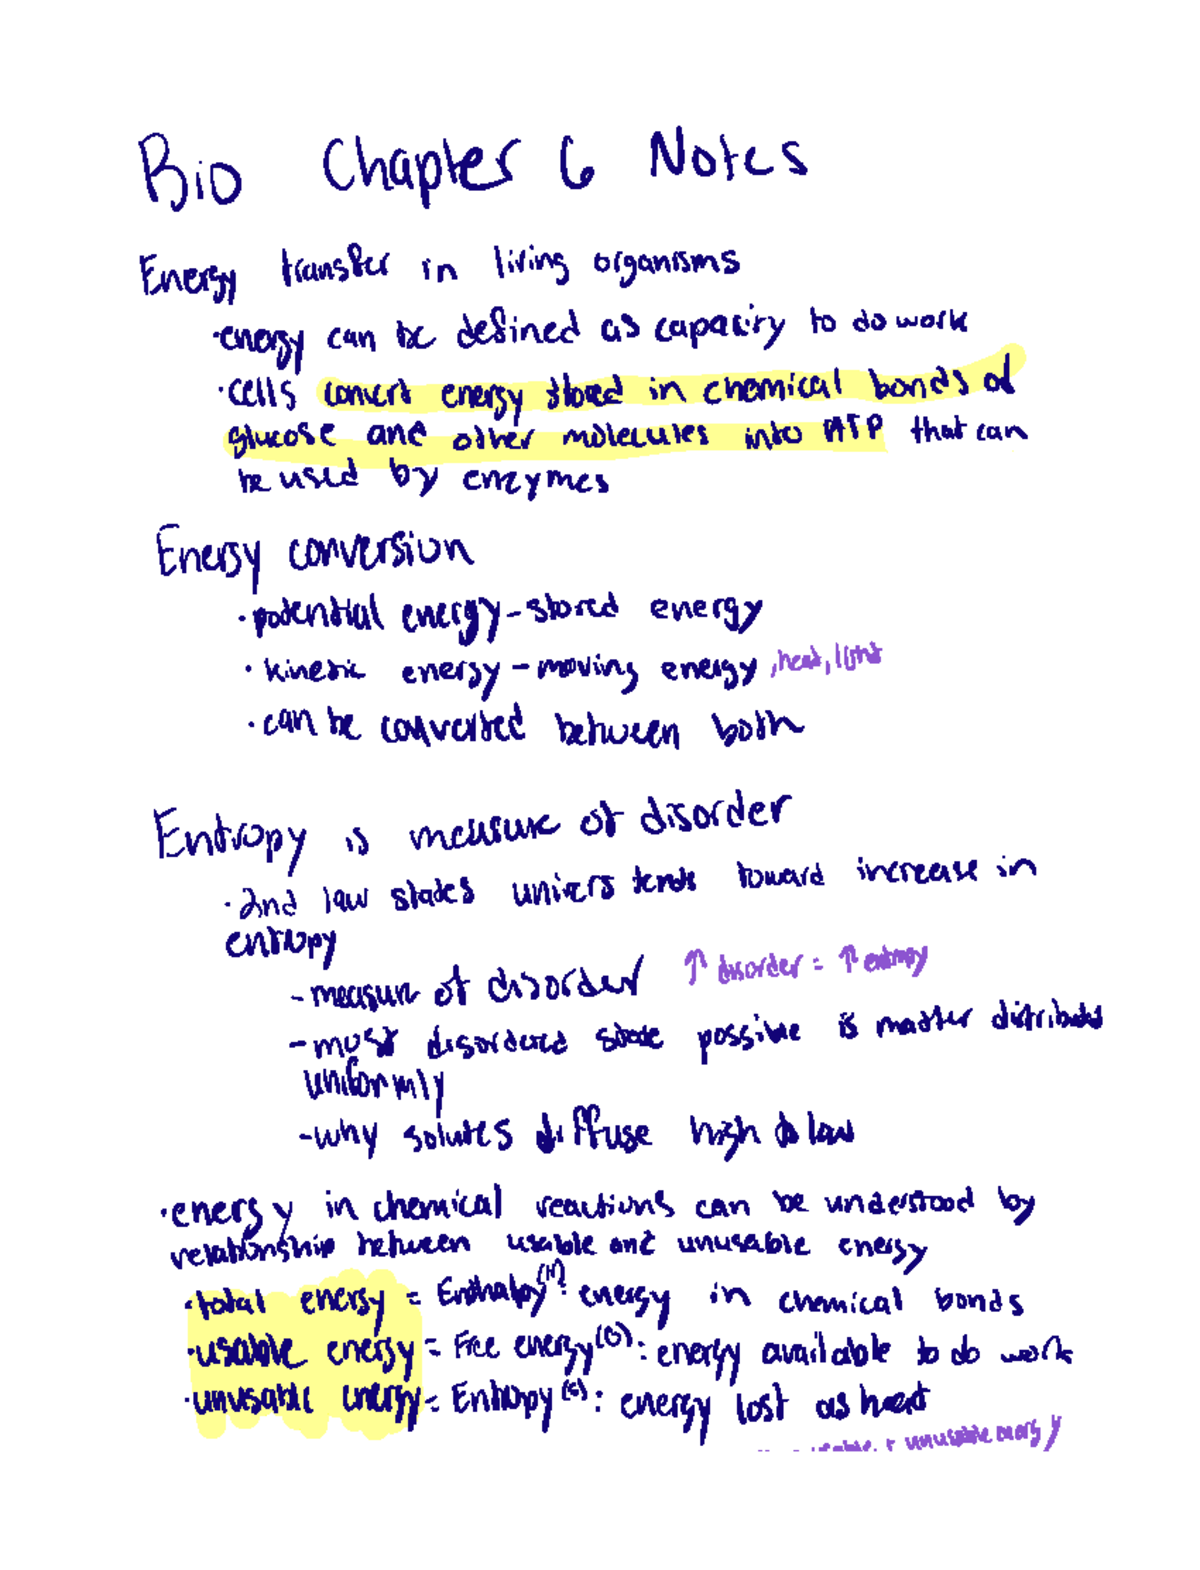 Bio Chapter 6 Notes
Energy transfer in living organisms
·energy can be defined as capacity to do work
·cells convert energy stored in chemical bonds of
glucose and other molecules into ATP that can
be used by enzymes
Energy conversion
·potential energy-stored energy
·kinetic energy-moving energy, heat, light
·can be converted between both
Entropy is measure of disorder
·2nd law states univers tends toward increase in
entropy
-measure of disorder ↑ disorder = ↑ entropy
-most disordered state possible is matter distributed
uniformly
-why solutes diffuse high to low
·energy in chemical reactions can be understood by
relationship between usable and unusable energy
·total energy = Enthalpy(H): energy in chemical bonds
·usable energy = Free energy(G): energy available to do work
·unusable energy = Entropy(S): energy lost as heat
usable + unusable energy